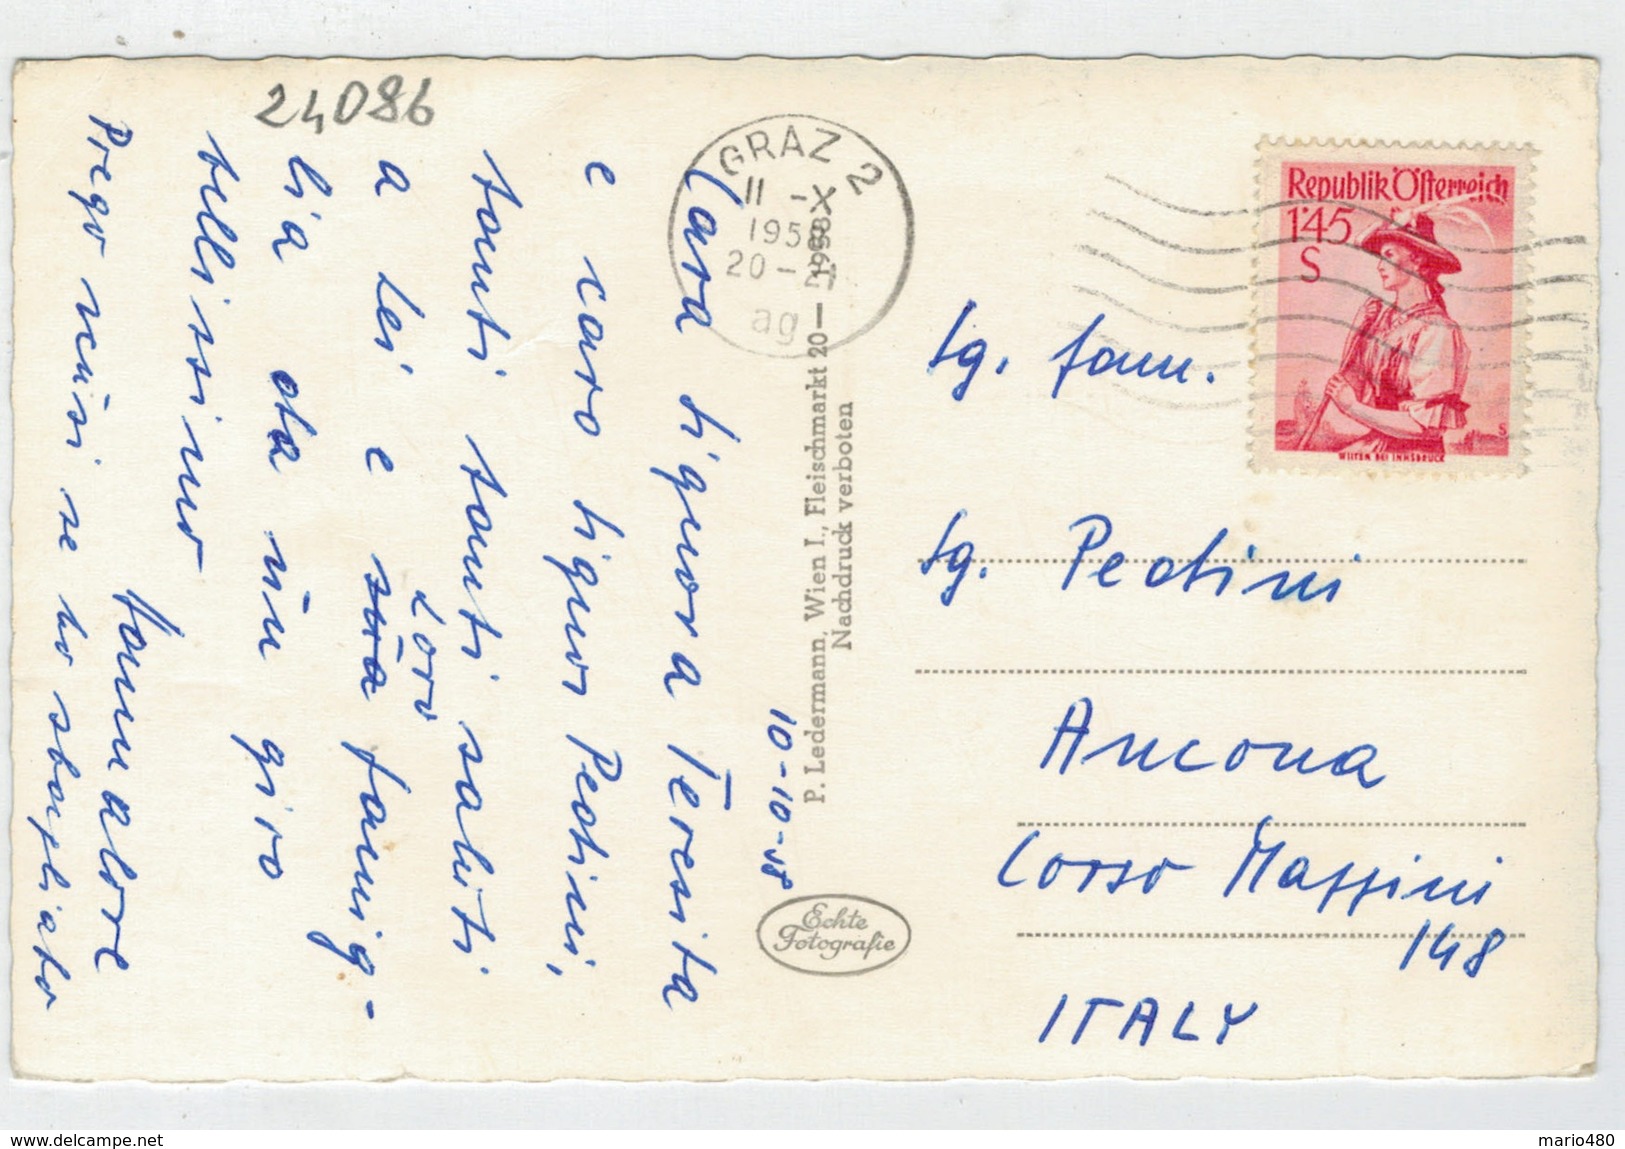 24086
10-10-58
Cara signora Teresita
e caro signor Pedini,
tanti tanti saluti
a Lei e sua famig-
Loro
lia da un giro
bellissimo
Prego scusi se ho sbagliato
GRAZ 2
11 -X
1958
20-
ag
Republik Österreich
1·45
S
WILTEN BEI INNSBRUCK
S
Sg. fam.
Sg. Pedini
Ancona
Corso Mazzini
148
ITALY
P. Ledermann, Wien I., Fleischmarkt 20—
Nachdruck verboten
Echte
Fotografie
www.delcampe.net
mario480